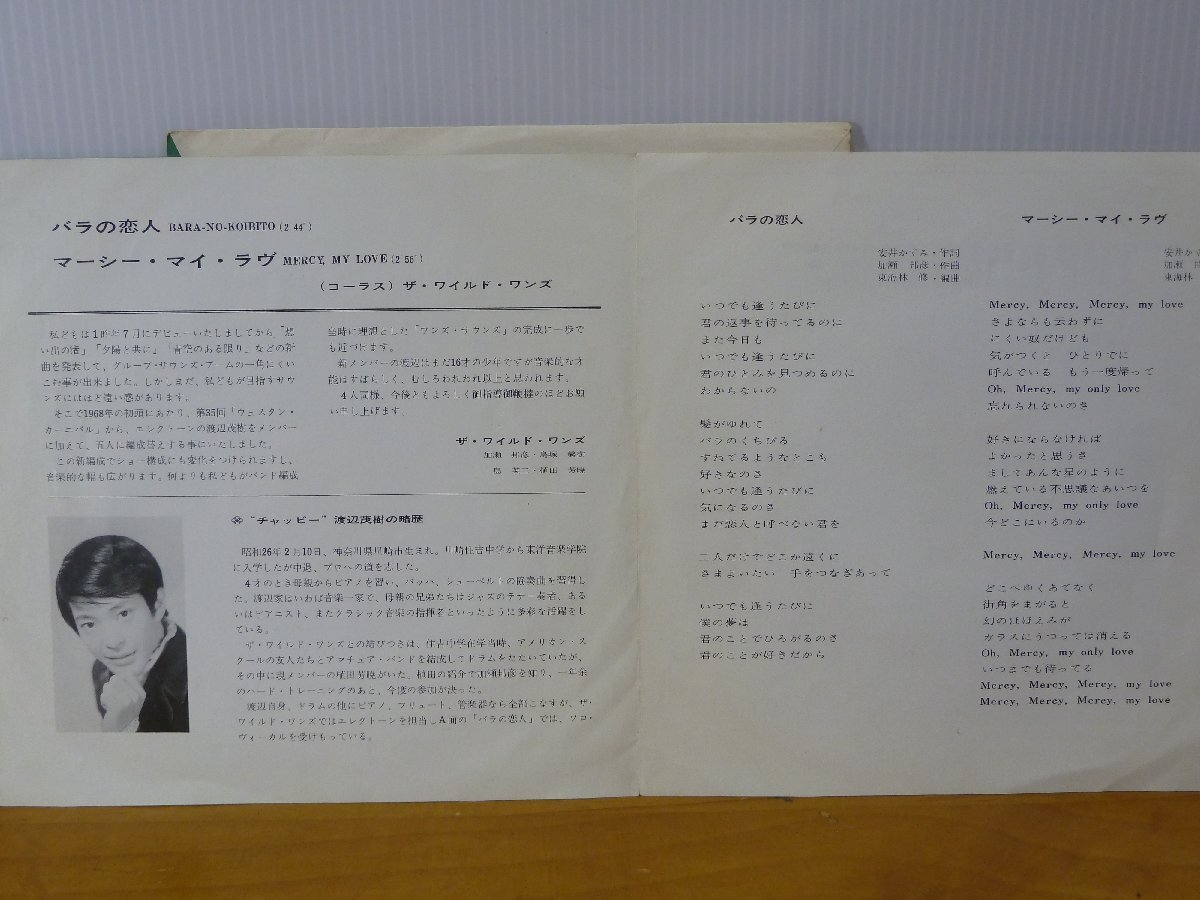 バラの恋人 BARA-NO-KOIBITO (2′44″)
マーシー・マイ・ラヴ MERCY, MY LOVE (2′56″)
(コーラス) ザ・ワイルド・ワンズ
私どもは1昨年7月にデビューいたしましてから「想
い出の渚」「夕陽と共に」「青空のある限り」などの新
曲を発表して、グループ・サウンズ・ブームの一角にくい
こむ事が出来ました。しかしまだ、私どもが目指すサウ
ンズにはほど遠い感があります。
そこで1968年の初頭にあたり、第35回「ウェスタン・
カーニバル」から、エレクトーンの渡辺茂樹をメンバー
に加えて、五人に編成替えする事にいたしました。
この新編成でショー構成にも変化をつけられますし、
音楽的な幅も広がります。何よりも私どもがバンド編成
当時に理想とした「ワンズ・サウンズ」の完成に一歩で
も近づけます。
新メンバーの渡辺はまだ16才の少年ですが音楽的な才
能はすばらしく、むしろわれわれ以上と思われます。
4人同様、今後ともよろしく御指導御鞭撻のほどお願
い申し上げます。
ザ・ワイルド・ワンズ
加瀬 邦彦・鳥塚 繁樹
島 英二・植田 芳暁
※ “チャッピー” 渡辺茂樹の略歴
昭和26年2月10日、神奈川県川崎市生まれ。川崎住吉中学から東洋音楽学院
に入学したが中退、プロへの道を志した。
4才のとき母親からピアノを習い、バッハ、シューベルトの協奏曲を習得し
た。渡辺家はいわば音楽一家で、母親の兄弟たちはジャズのテナー奏者、ある
いはピアニスト、またクラシック音楽の指揮者といったように多彩な活躍をし
ている。
ザ・ワイルド・ワンズとの結びつきは、住吉中学在学当時、アメリカン・ス
クールの友人たちとアマチュア・バンドを結成してドラムをたたいていたが、
その中に現メンバーの植田芳暁がいた。植田の紹介で加瀬邦彦を知り、一年余
のハード・トレーニングのあと、今度の参加が決った。
渡辺自身、ドラムの他にピアノ、フリュート、管楽器なら全部こなすが、ザ・
ワイルド・ワンズではエレクトーンを担当しA面の「バラの恋人」では、ソロ・
ヴォーカルを受けもっている。
バラの恋人
安井かずみ・作詞
加瀬 邦彦・作曲
東海林 修・編曲
いつでも逢うたびに
君の返事を待ってるのに
また今日も
いつでも逢うたびに
君のひとみを見つめるのに
わからないの
髪がゆれて
バラのくちびる
すねてるようなとこも
好きなのさ
いつでも逢うたびに
気になるのさ
まだ恋人と呼べない君を
二人だけでどこか遠くに
さまよいたい 手をつなぎあって
いつでも逢うたびに
僕の夢は
君のことでひろがるのさ
君のことが好きだから
マーシー・マイ・ラヴ
安井かず
加瀬 邦
東海林
Mercy, Mercy, Mercy, my love
さよならも云わずに
にくい奴だけども
気がつくと ひとりでに
呼んでいる もう一度帰って
Oh, Mercy, my only love
忘れられないのさ
好きにならなければ
よかったと思うさ
ましてあんな星のように
燃えている不思議なあいつを
Oh, Mercy, my only love
今どこにいるのか
Mercy, Mercy, Mercy, my love
どこへゆくあてなく
街角をまがると
幻のほほえみが
ガラスにうつっては消える
Oh, Mercy, my only love
いつまでも待ってる
Mercy, Mercy, Mercy, my love
Mercy, Mercy, Mercy, my love